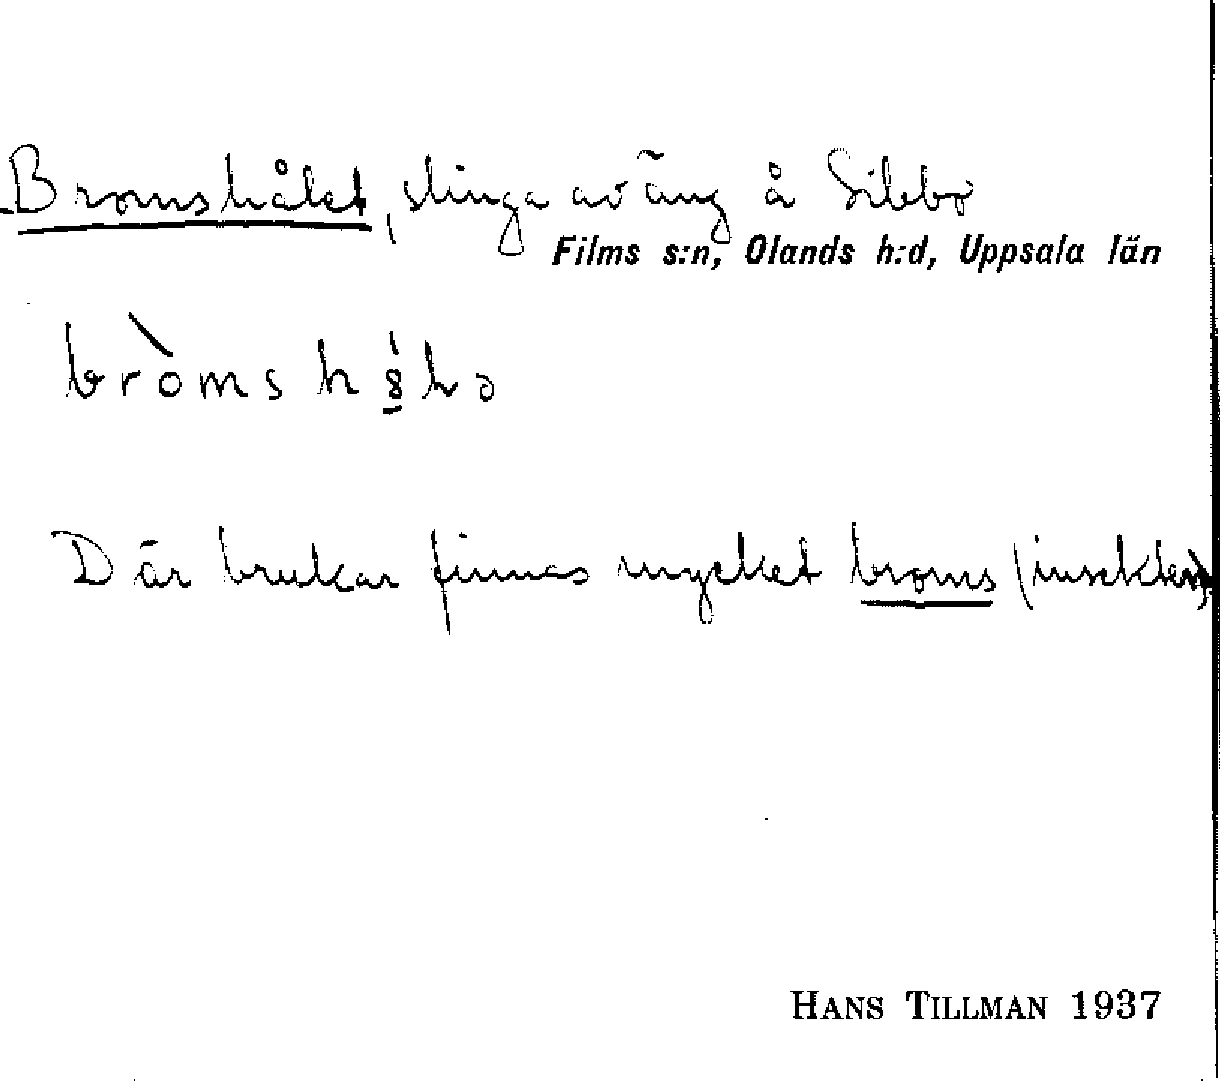 Bromshålet, slinga av äng å Sibbo
Films s:n, Olands h:d, Uppsala län
Där brukar finnas mycket broms (insekten).
HANS TILLMAN 1937